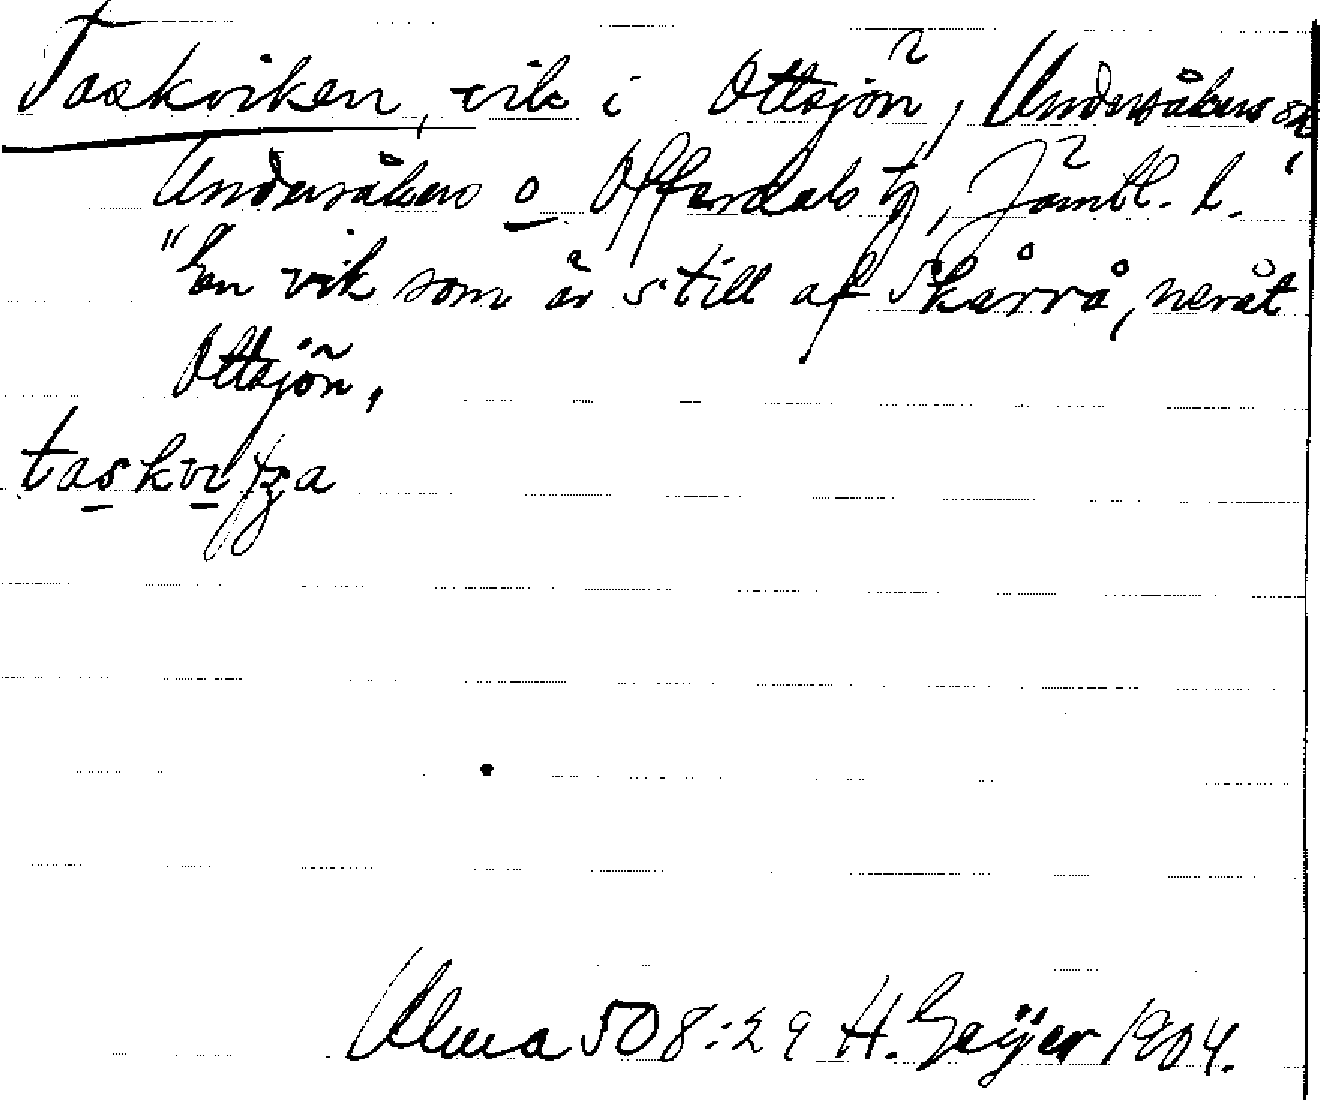 Taskviken, vik i Ottsjön, Undersåkers sn,
Undersåkers o Offerdals tg, Jämtl. l.
"En vik som är still af Skårrå, neråt
Ottsjön,
Ulma 508:29 H. Geijer 1904.